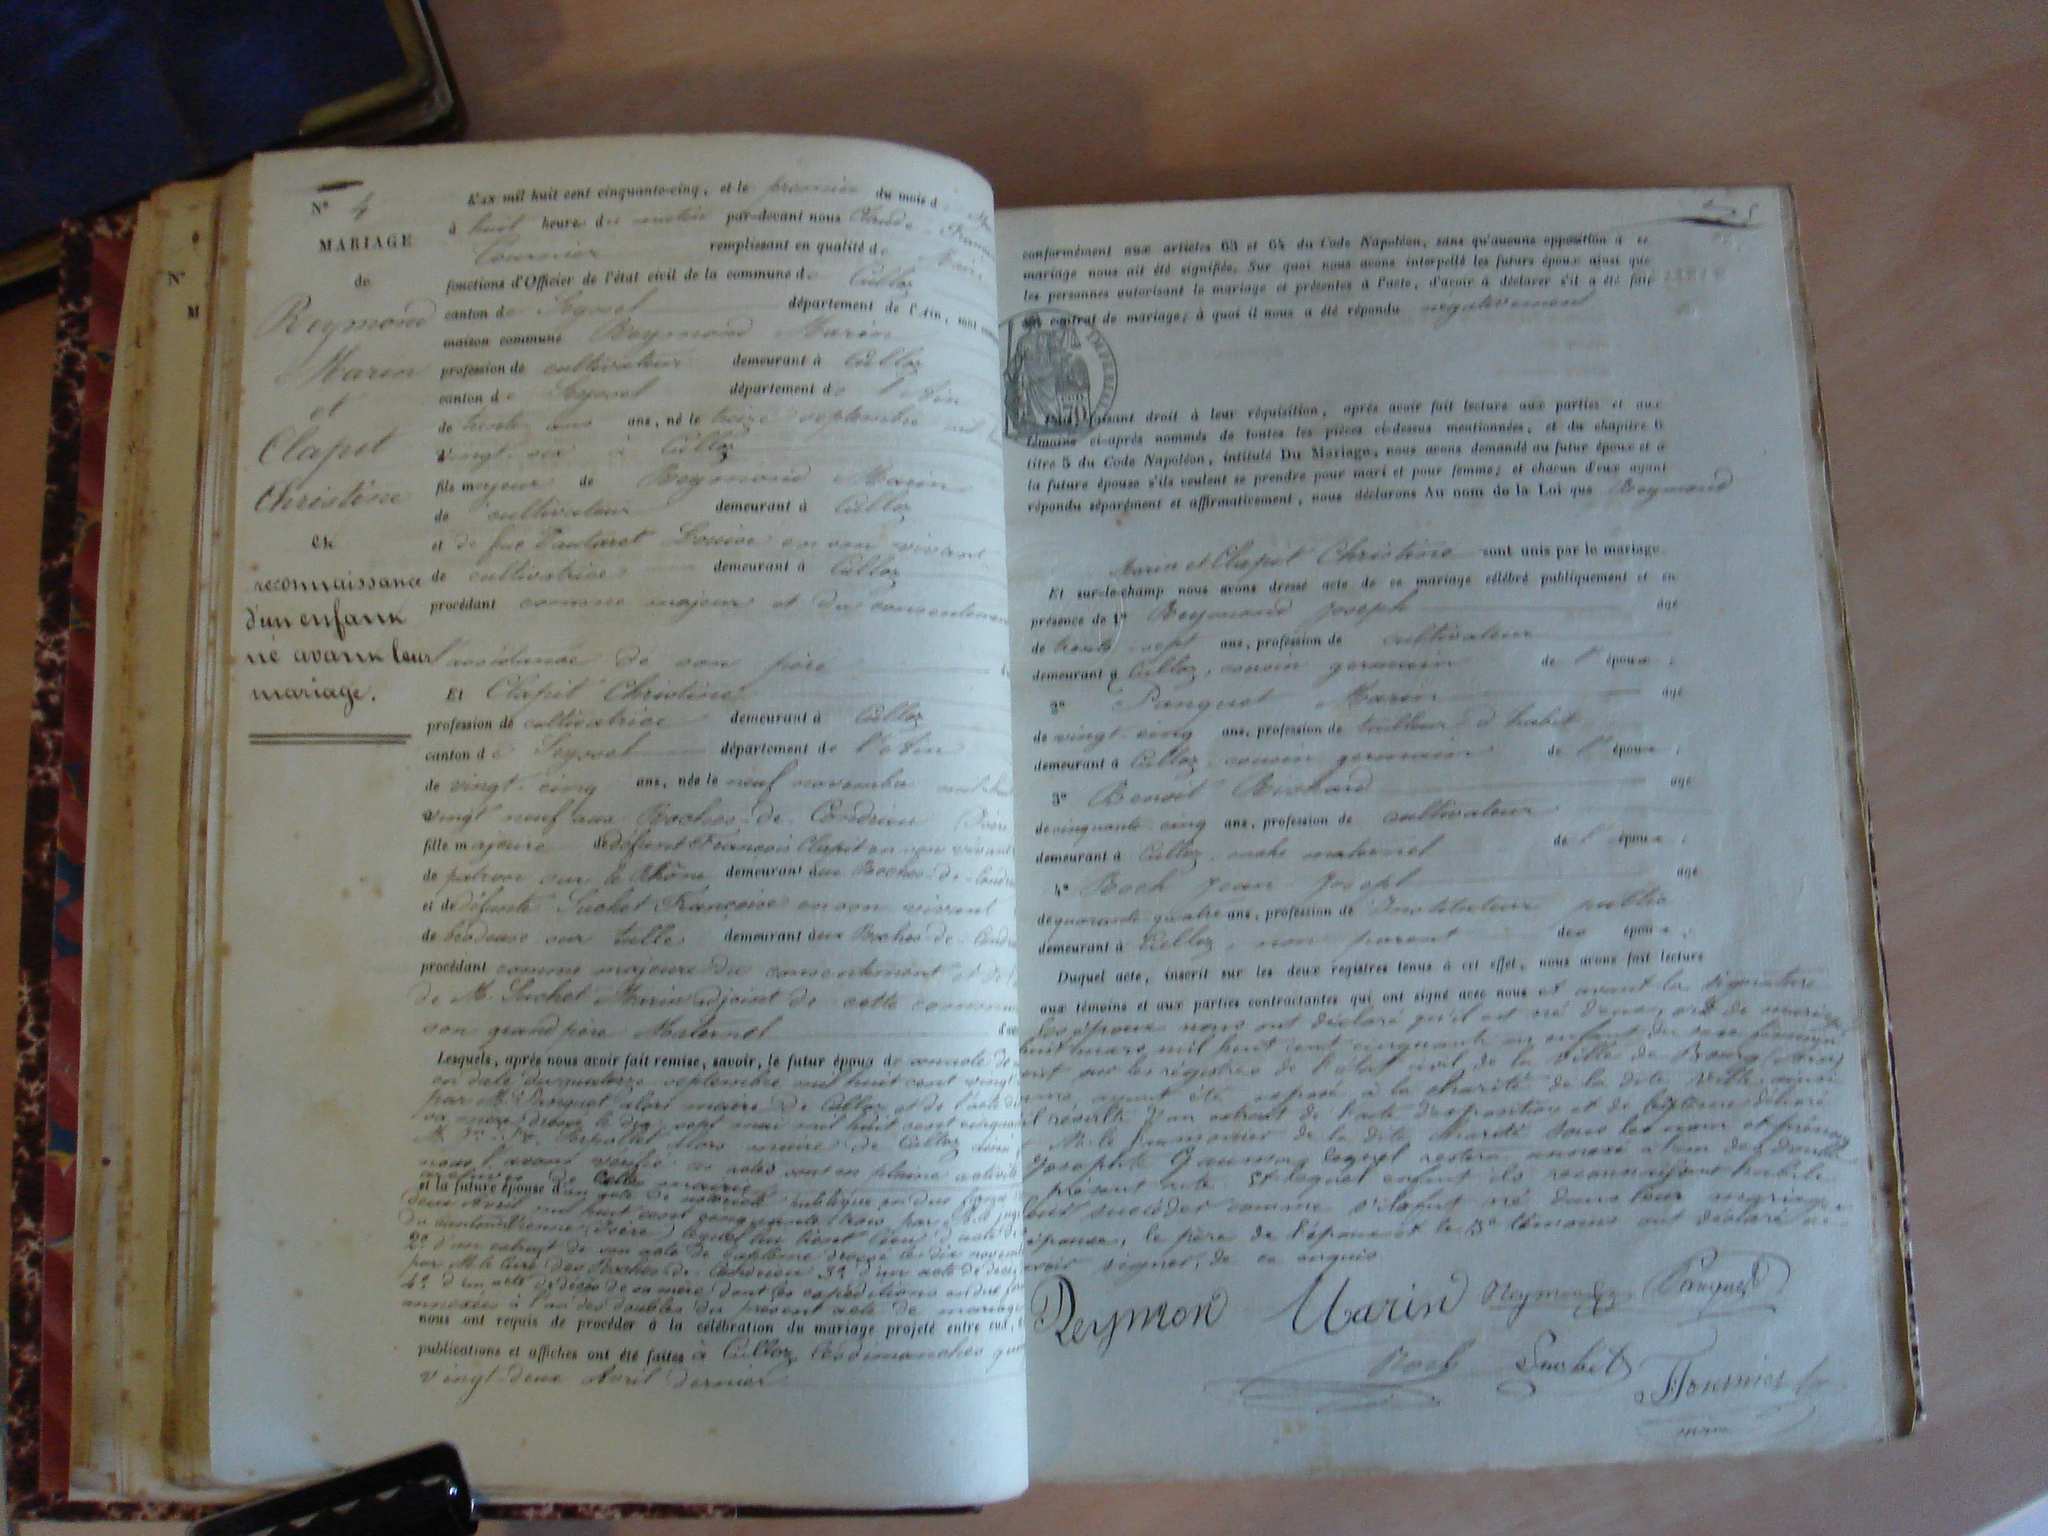 N° 4
MARIAGE
de
Reymond
Marin
et
Clapit
Christine
et
reconnaissance
d'un enfant
né avant leur
mariage.
L'an mil huit cent cinquante-cinq, et le premier du mois d
à huit heure du matin par-devant nous Claude-
Fournier remplissant en qualité de Maire
fonctions d'Officier de l'état civil de la commune de Culloz
canton de Seyssel département de l'Ain, sont
maison commune Reymond Marin
profession de cultivateur demeurant à Culloz
canton de Seyssel département de l'Ain
de trente ans ans, né le treize septembre mil
vingt-six à Culloz
fils majeur de Reymond Marin
de cultivateur demeurant à Culloz
et de feue Pautaret Louise en son vivant
de cultivatrice demeurant à Culloz
procédant comme majeur et du consentement
l'assistance de son père
Et Clapit Christine
profession de cultivatrice demeurant à Culloz
canton de Seyssel département de l'Ain
de vingt-cinq ans, née le neuf novembre mil
vingt neuf aux Roches-de-Condrieu (Isère
fille majeure de défunt François Clapit en son vivant
de patron sur le Rhône demeurant aux Roches-de-
et de défunte Suchet Françoise en son vivant
de brodeuse sur tulle demeurant aux Roches-de-
procédant comme majeure du consentement et de
de M. Suchet Marin adjoint de cette
son grand père Maternel
Lesquels, après nous avoir fait remise, savoir, le futur époux de
en date du quatorze septembre mil huit cent vingt
par M. Panquet alors maire de Culloz et de l'acte de
sa mère dressé le dix-sept mai mil huit cent
alors maire de Culloz
et la future épouse d'un acte de notoriété publique en due forme
deux Avril mil huit cent cinquante trois par
du canton de Vienne (Isère) lequel lui tient lieu d'acte de
2° d'un extrait de son acte de baptême dressé le dix
par M. le Curé des Roches-de-Condrieu 3° d'un acte de
4° d'un acte de décès de sa mère dont les expéditions en due
annexées à l'un des doubles du présent acte de mariage
nous ont requis de procéder à la célébration du mariage projeté entre eux,
publications et affiches ont été faites à Culloz les dimanches
vingt-deux Avril dernier
conformément aux articles 63 et 64 du Code Napoléon, sans qu'aucune opposition à ce
mariage nous ait été signifiée. Sur quoi nous avons interpellé les futurs époux ainsi que
les personnes autorisant le mariage et présentes à l'acte, d'avoir à déclarer s'il a été fait
un contrat de mariage; à quoi il nous a été répondu négativement
faisant droit à leur réquisition, après avoir fait lecture aux parties et aux
témoins ci-après nommés de toutes les pièces ci-dessus mentionnées, et du chapitre 6
titre 5 du Code Napoléon, intitulé Du Mariage, nous avons demandé au futur époux et à
la future épouse s'ils veulent se prendre pour mari et pour femme; et chacun d'eux ayant
répondu séparément et affirmativement, nous déclarons Au nom de la Loi que Reymond
Marin et Clapit Christine sont unis par le mariage
Et sur-le-champ nous avons dressé acte de ce mariage célébré publiquement et en
présence de 1° Reymond Joseph âgé
de trente sept ans, profession de cultivateur
demeurant à Culloz, cousin germain de l'époux;
2° Panquet Marin âgé
de vingt-cinq ans, profession de tailleur d'habit
demeurant à Culloz, cousin germain de l'époux;
3° Benoit Richard âgé
de cinquante cinq ans, profession de cultivateur
demeurant à Culloz, oncle maternel de l'époux;
4° Roch Jean-Joseph âgé
de quarante quatre ans, profession de Instituteur public
demeurant à Culloz, non parent des époux;
Duquel acte, inscrit sur les deux registres tenus à cet effet, nous avons fait lecture
aux témoins et aux parties contractantes qui ont signé avec nous et avant la signature
les époux nous ont déclaré qu'il est né d'eux,
huit mars mil huit cent cinquante un enfant du sexe féminin
sur les registres de l'état civil de la Ville de Bourg (Ain)
ayant été exposé à la charité de la dite Ville ainsi
il résulte d'un extrait de l'acte d'exposition et de baptême délivré
M. l'aumonier de la dite Charité sous les nom et prénom
Josephte lequel restera annexé à l'un des doubles
présent acte. Et lequel enfant ils reconnaissent habile
succéder comme s'il fut né dans leur mariage.
épouse, le père de l'époux et le 3e témoins ont déclaré ne
savoir signer, de ce enquis.
Reymon Marin Reymond Panquet
Roch Suchet
Fournier